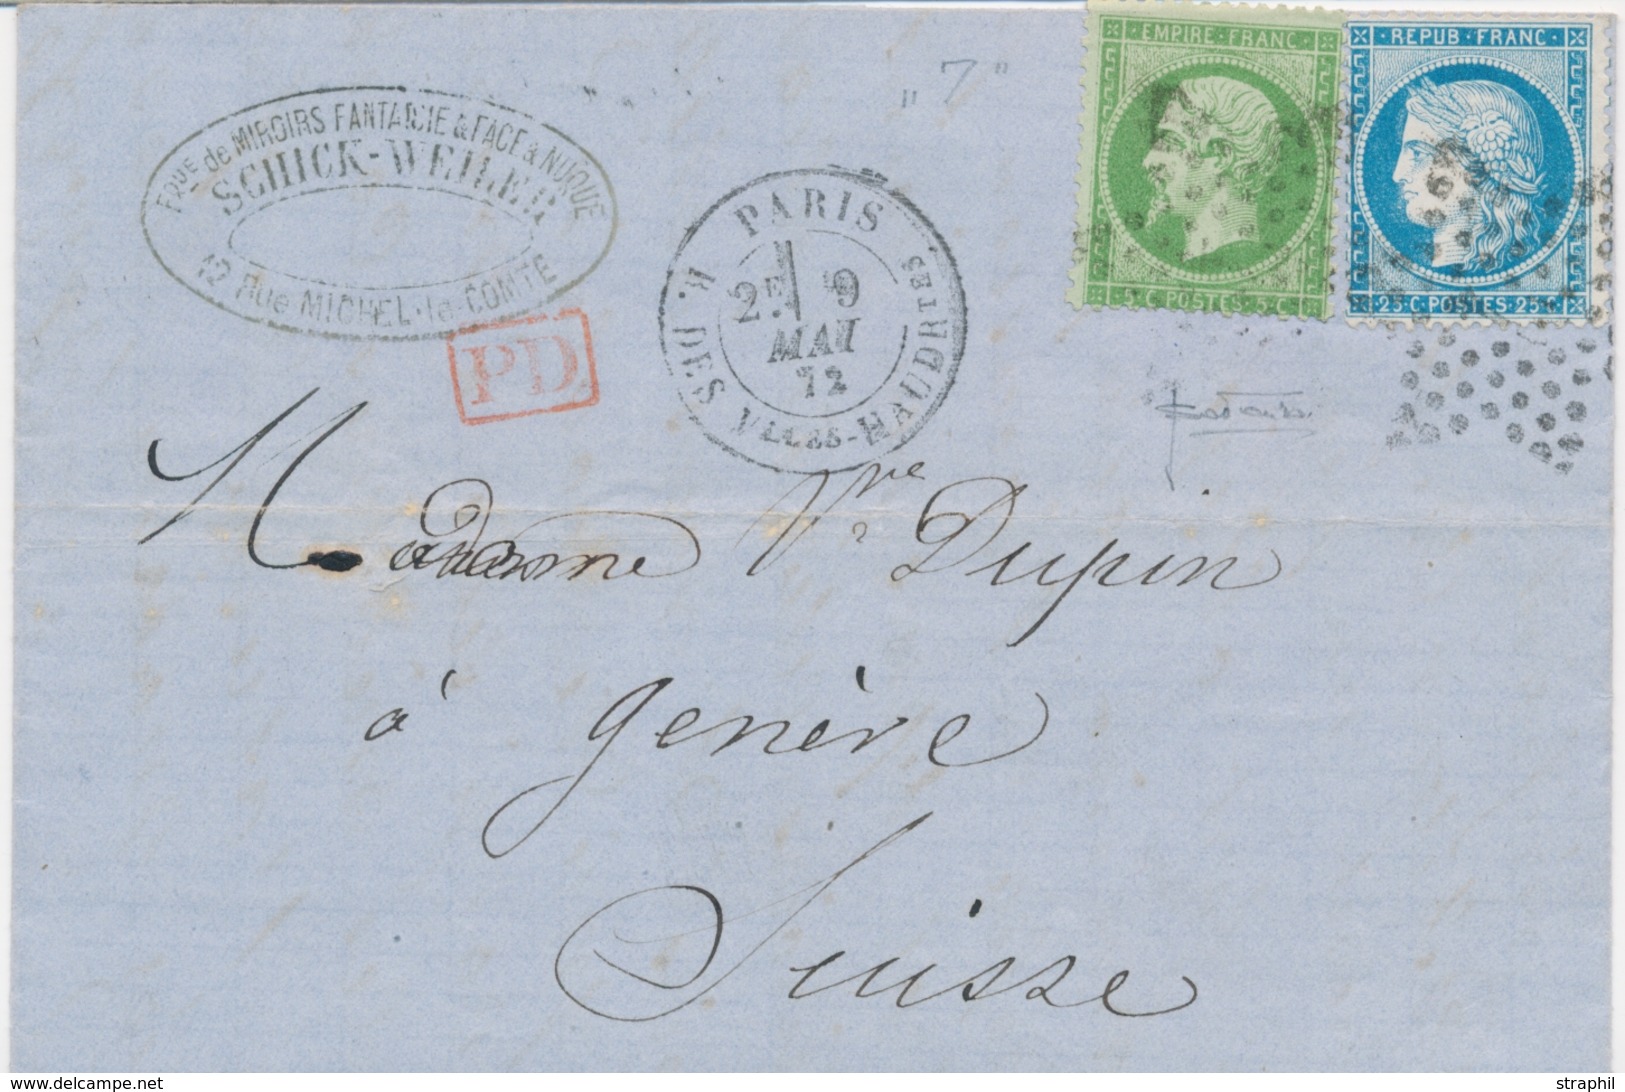 „ 7 "
EMPIRE · FRANC
5 · C · POSTES · 5 · C
REPUB · FRANC
25 · C · POSTES · 25 · C
Fque de MIROIRS FANTAISIE & FACE & NUQUE
SCHICK-WEILER
42 Rue MICHEL-le-COMTE
PD
PARIS
2E 9
MAI
72
R. DES VLLES-HAUDRTES
Madame Vve Dupin
à Genève
Suisse
www.delcampe.net
straphil